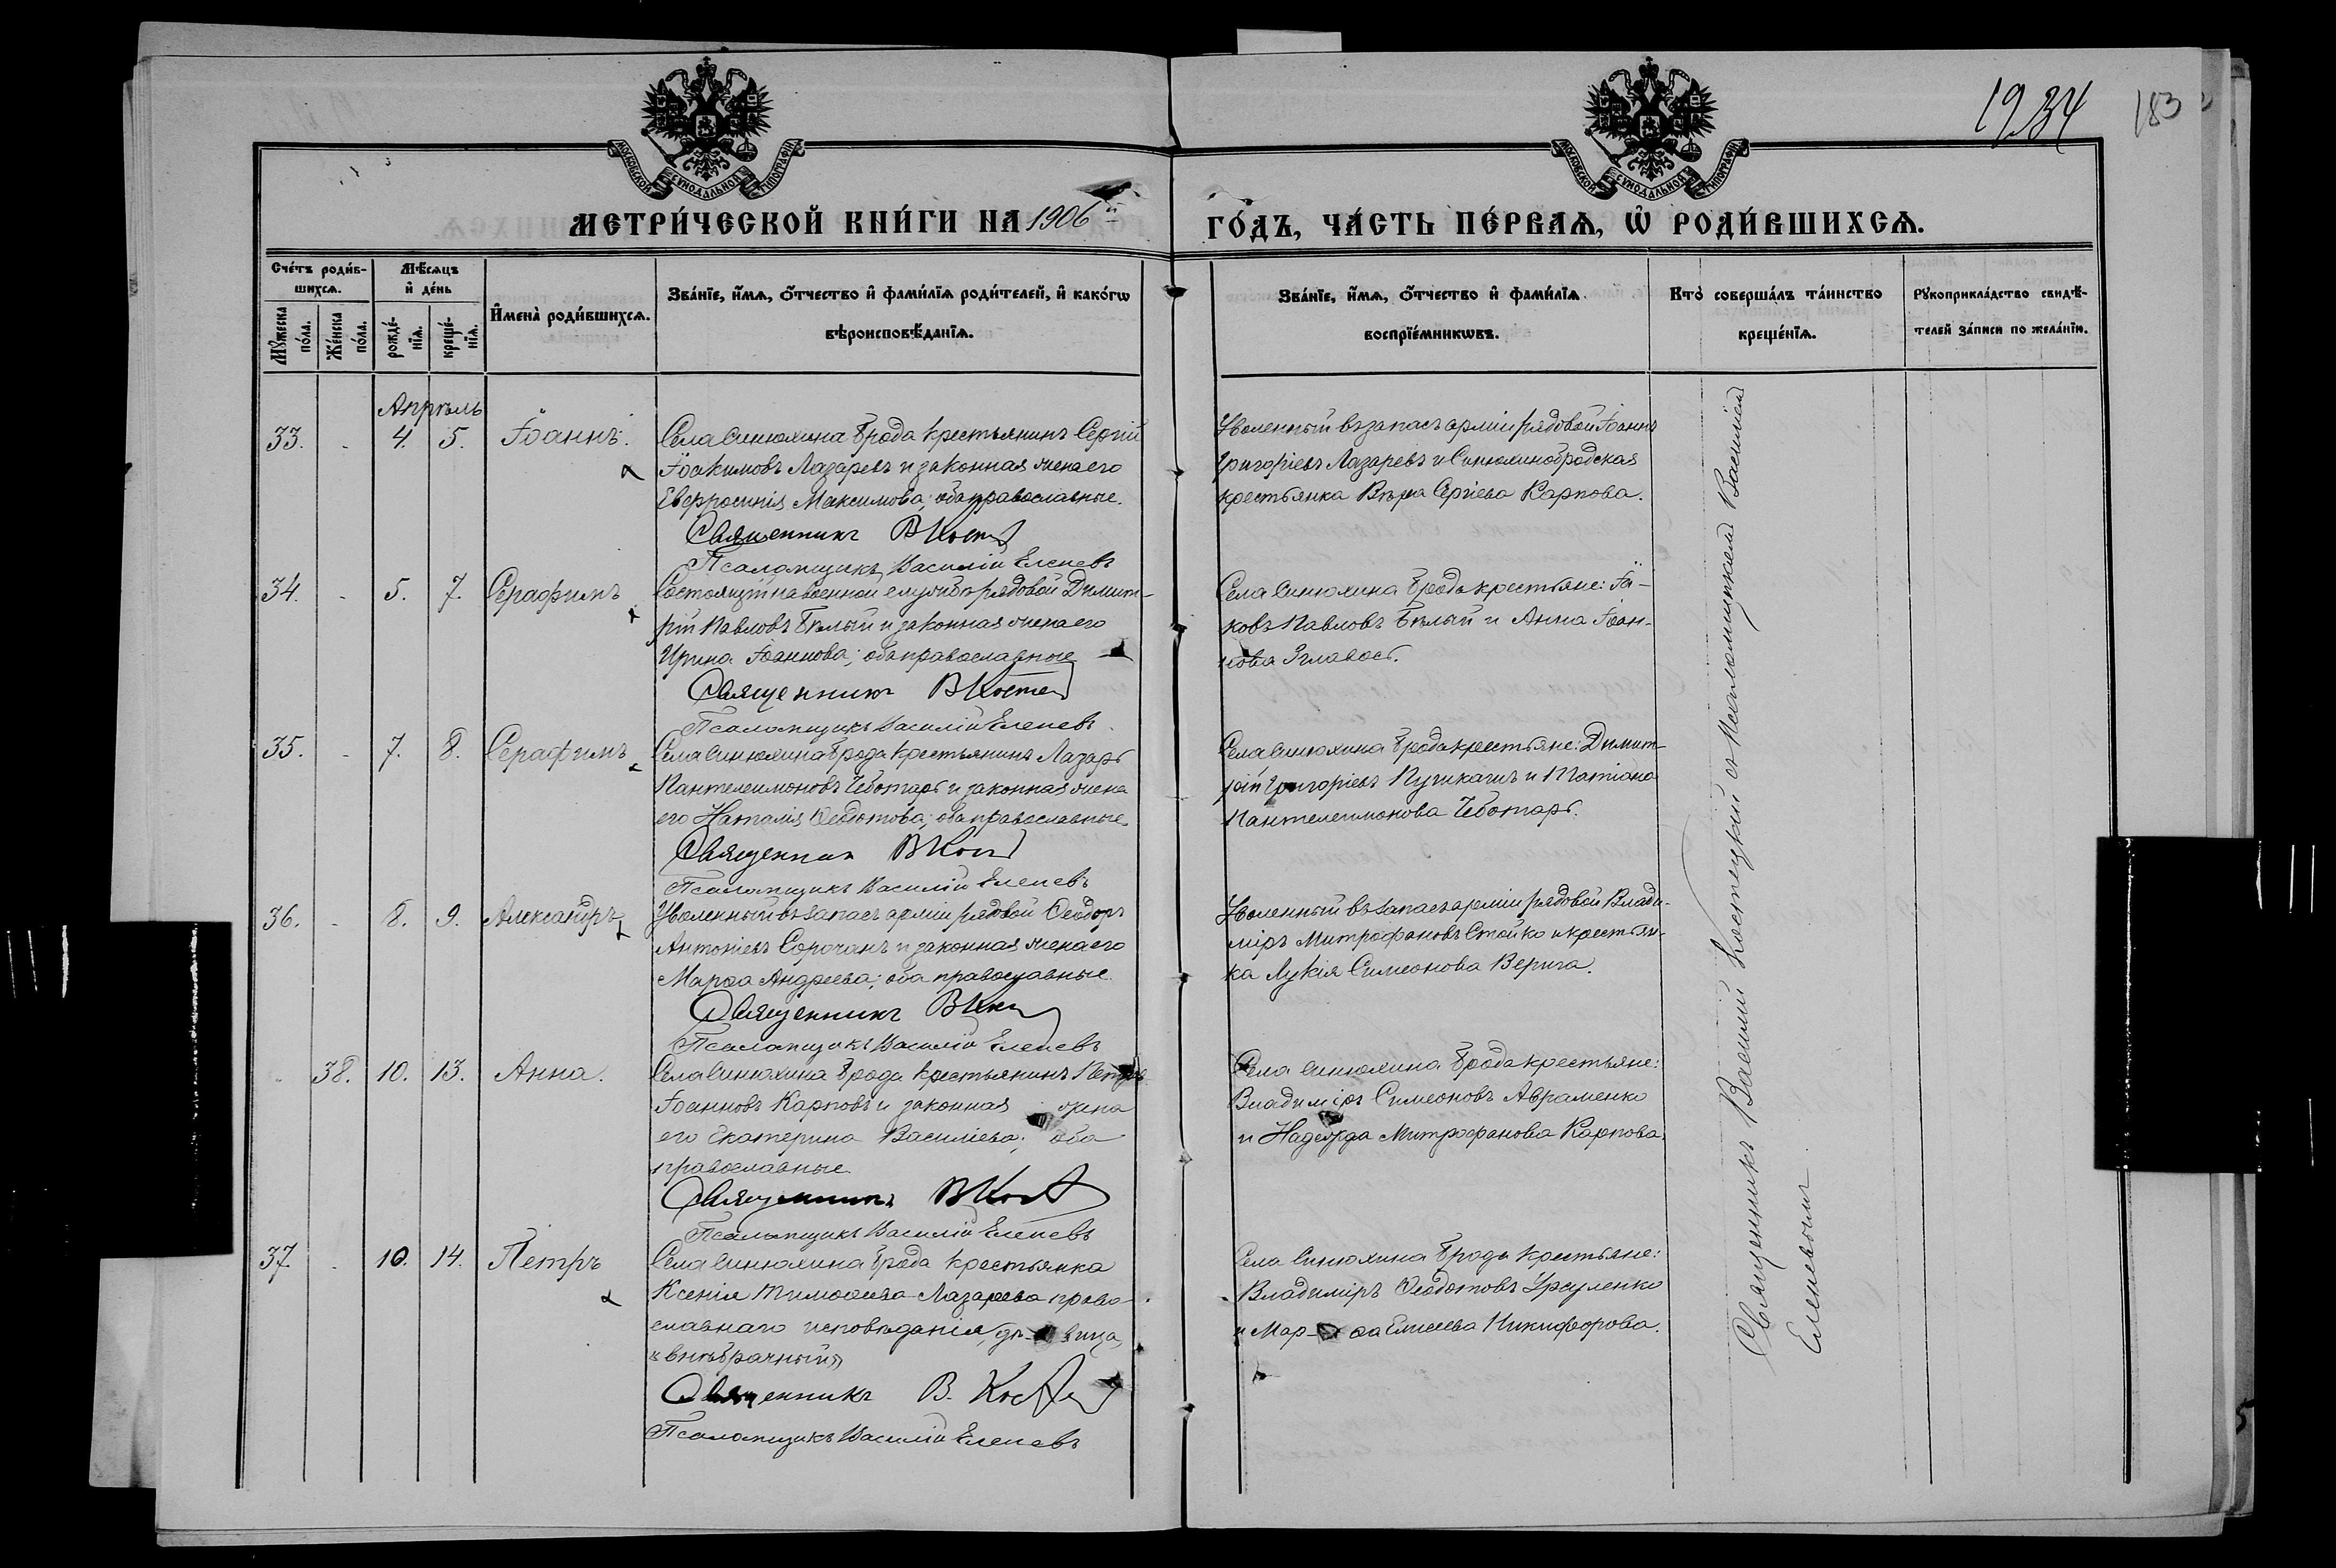 1934
183
МОСКОВСКОЙ СѴНОДАЛЬНОЙ ТИПОГРАФІИ
МОСКОВСКОЙ СѴНОДАЛЬНОЙ ТИПОГРАФІИ
МЕТРИ́ЧЕСКОЙ КНИ́ГИ НА 1906й ГО́ДЪ, ЧА́СТЬ ПЕ́РВАѦ, Ѡ҆ РОДИ́ВШИХСѦ.
Сче́тъ роди́в-
шихсѧ.
Мꙋ́жеска по́ла.
Же́нска по́ла.
Мѣ́сѧцъ и҆ де́нь
рожде́-нїѧ.
креще́-нїѧ.
И҆мена̀ роди́вшихсѧ.
Зва́нїе, и҆́мѧ, ѻ҆́тчество и҆ фами́лїѧ роди́телей, и҆ како́гѡ
вѣроисповѣ́данїѧ.
Зва́нїе, и҆́мѧ, ѻ҆́тчество и҆ фами́лїѧ
воспрїе́мникѡвъ.
Кто̀ соверша́лъ та́инство
креще́нїѧ.
Рꙋкоприкла́дство свидѣ́-
телей за́писи по жела́нїю.
Апрѣль
33. - 4. 5. Іоаннъ.
Села Синюхина Брода крестьянинъ Сергій
Іоакимовъ Лазаревъ и законная жена его
Евфросинія Максимова; оба православные.
Священникъ В Кост
Псаломщикъ Василій Елепевъ
Уволенный въ запасъ арміи рядовой Іоаннъ
Григоріевъ Лазаревъ и Синюхинобродская
крестьянка Вѣра Сергіева Карпова.
34. - 5. 7. Серафимъ
Состоящій на военной службѣ рядовой Димит-
рій Павловъ Бѣлый и законная жена его
Ирина Іоаннова; оба православные
Священникъ В Косте
Псаломщикъ Василій Елепевъ.
Села Синюхина Брода крестьяне: Іа-
ковъ Павловъ Бѣлый и Анна Іоан-
нова
35. - 7. 8. Серафимъ
Села Синюхина Брода крестьянинъ Лазарь
Пантелеимоновъ Чеботарь и законная жена
его Наталія Ѳеодотова; оба православные
Священник В Кост
Псаломщикъ Василій Елепевъ
Села Синюхина Брода крестьяне: Димит-
рій Григоріевъ Пужкачъ и Татіана
Пантелеимонова Чеботарь.
36. - 8. 9. Александръ
Уволенный въ запасъ арміи рядовой Ѳеодоръ
Антоніевъ Сорочанъ и законная жена его
Марѳа Андреева; оба православные
Священникъ В
Псаломщикъ Василій Елепевъ
Уволенный въ запасъ арміи рядовой Влади-
міръ Митрофановъ Стойко и крестьян-
ка Лукія Симеонова Верича.
- 38. 10. 13. Анна.
Села Синюхина Брода крестьянинъ Петръ
Іоанновъ Карповъ и законная жена
его Екатерина Василіева; оба
православные
Священникъ В Кост
Псаломщикъ Василій Елепевъ
Села Синюхина Брода крестьяне:
Владиміръ Симеоновъ Авраменко
и Надежда Митрофанова Карпова.
37. - 10. 14. Петръ
Села Синюхина Брода крестьянка
Ксенія Тимоѳеева Лазарева право-
славнаго исповѣданія, дѣ-вица,
"внѣбрачный"
Священникъ В. Косте
Псаломщикъ Василій Елепевъ
Села Синюхина Брода крестьяне:
Владиміръ Ѳеодотовъ Урсуленко
и Мар-ѳа Елисеева Никифорова.
Священникъ Василій Костецкій съ Псаломщикомъ Василіемъ
Елепевымъ.